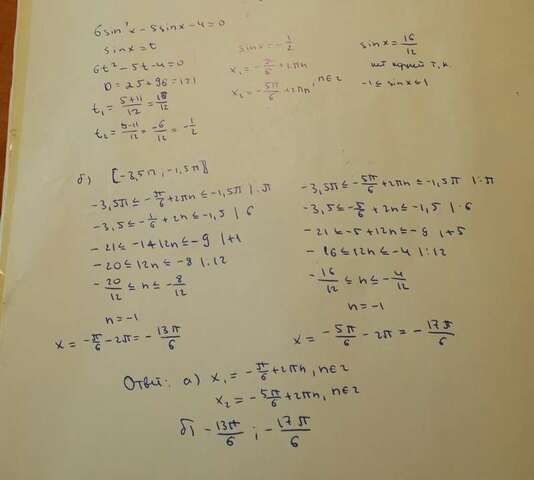 6sin²x - 5sinx - 4 = 0
sinx = t
6t² - 5t - 4 = 0
D = 25 + 96 = 121
t₁ = 5+11/12 = 16/12
t₂ = 5-11/12 = -6/12 = -1/2
sinx = -1/2
x₁ = -π/6 + 2πn
x₂ = -5π/6 + 2πn, n∈z
sinx = 16/12
нет корней т.к.
-1 ≤ sinx ≤ 1
б) [-3,5π; -1,5π]
-3,5π ≤ -π/6 + 2πn ≤ -1,5π |:π
-3,5 ≤ -1/6 + 2n ≤ -1,5 |·6
-21 ≤ -1 + 12n ≤ -9 |+1
-20 ≤ 12n ≤ -8 |:12
-20/12 ≤ n ≤ -8/12
n = -1
x = -π/6 - 2π = -13π/6
-3,5π ≤ -5π/6 + 2πn ≤ -1,5π |:π
-3,5 ≤ -5/6 + 2n ≤ -1,5 |·6
-21 ≤ -5 + 12n ≤ -9 |+5
-16 ≤ 12n ≤ -4 |:12
-16/12 ≤ n ≤ -4/12
n = -1
x = -5π/6 - 2π = -17π/6
Ответ: а) x₁ = -π/6 + 2πn, n∈z
x₂ = -5π/6 + 2πn, n∈z
б) -13π/6; -17π/6